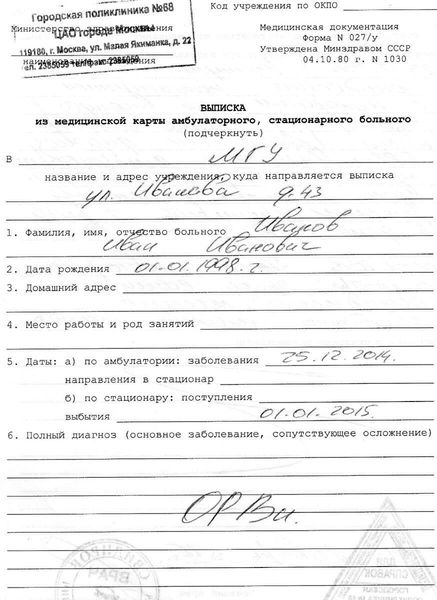 Код учреждения по ОКПО
Городская поликлиника №68
ЦАО города Москвы
119180, г. Москва, ул. Малая Якиманка, д. 22
тел. 2385059 тел/факс 2385059
Министерство здравоохранения
наименование учреждения
Медицинская документация
Форма N 027/у
Утверждена Минздравом СССР
04.10.80 г. N 1030
ВЫПИСКА
из медицинской карты амбулаторного, стационарного больного
(подчеркнуть)
В МГУ
название и адрес учреждения, куда направляется выписка
ул. Иванова д. 43
1. Фамилия, имя, отчество больного Иванов
Иван Иванович
2. Дата рождения 01.01.1998 г.
3. Домашний адрес
4. Место работы и род занятий
5. Даты: а) по амбулатории: заболевания 25.12.2014.
направления в стационар
б) по стационару: поступления
выбытия 01.01.2015.
6. Полный диагноз (основное заболевание, сопутствующее осложнение)
ОРВи.
ВРАЧ
ДЛЯ
СПРАВОК
ГОРОДСКАЯ